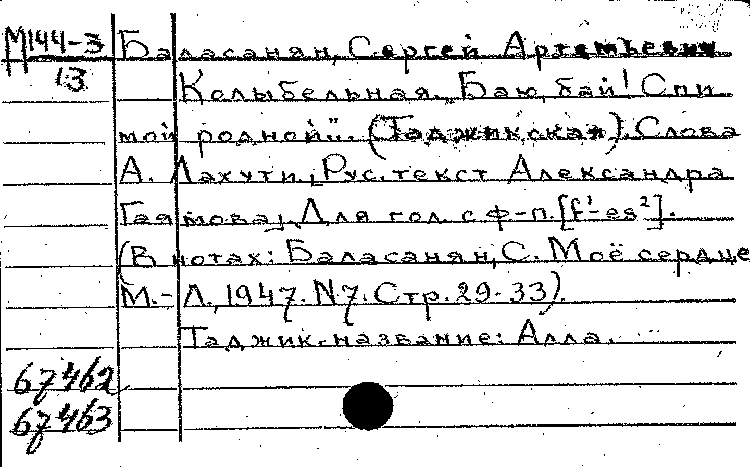 М144-3 Баласанян, Сергей Артемьевич
13 Колыбельная. „Баю, бай! Спи
мой родной". (Таджикская). Слова
А. Лахути, [Рус. текст Александра
Гаямова]. Для гол. с ф-п. [f¹-es²].
(В нотах: Баласанян, С. Моё сердце
М.-Л., 1947. N7. Стр. 29-33).
Таджик. название: Алла.
67462
67463